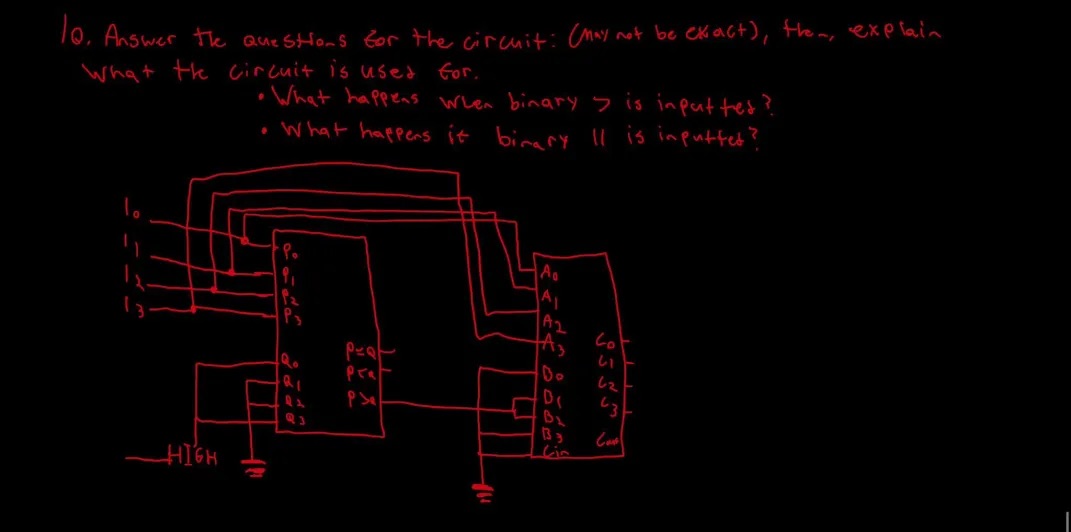 10. Answer the questions for the circuit: (May not be exact), then, explain
what the circuit is used for.
• What happens when binary 7 is inputted?
• What happens if binary 11 is inputted?
I0
I1
I2
I3
P0
P1
P2
P3
Q0
Q1
Q2
Q3
P=Q
P<Q
P>Q
HIGH
A0
A1
A2
A3
B0
B1
B2
B3
Cin
C0
C1
C2
C3
Cout